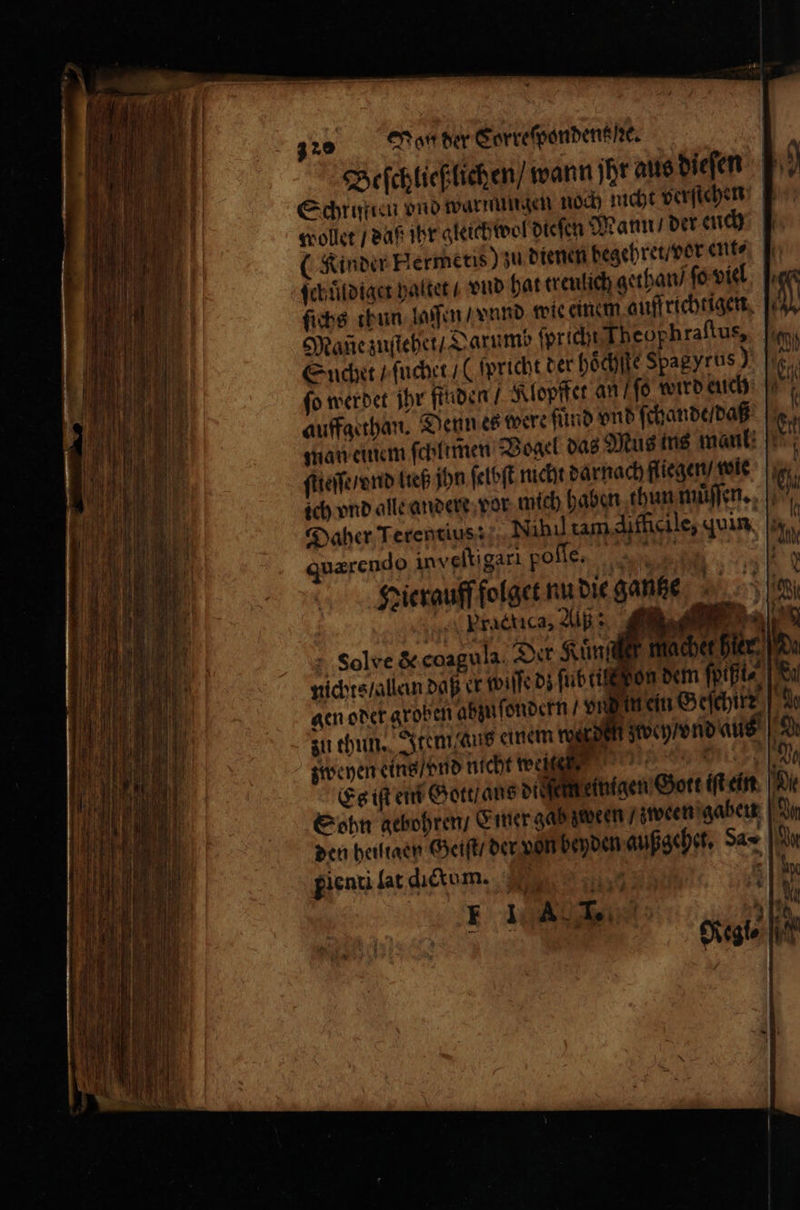 320 Von der Correſpondentz ꝛc.
Beſchließlichen/ wann jhr aus dieſen
Schrifften vnd warnungen noch nicht verſtehen
wollet / daß ihr gleichwol dieſen Mann / der euch
( Kinder Hermetis ) zu dienen begehret/vor ent⸗
ſchüldiget haltet / vnd hat treulich gethan/ ſo viel
ſichs thun laſſen / vnnd wie einem auffrichtigen
Mañe zuſtehet/ Darumb ſpricht Theophraſtus,
Suchet / ſuchet / ( ſpricht der höchſte Spagyrus )
ſo werdet ihr finden / Klopffet an / ſo wird euch
auffgethan. Denn es were ſünd vnd ſchande/daß
man einem ſchlim̃en Vogel das Mus ins maul
ſtieſſe/vnd ließ jhn ſelbſt nicht darnach fliegen/ wie
ich vnd alle andere vor mich haben thun müſſen.
Daher Terentius: Nihil tam difficile, quin
quærendo inveſtigari poſſe.
Hierauff folget nu die gantze
Practica, Alß:
Solve & coagula. Der Künſtler machet hier
nichts/allein daß er wiſſe dz ſubtile von dem ſpißi⸗
gen oder groben abzuſondern / vnd in ein Geſchirr
zu thun. Item/aus einem werden zwey/vnd aus
zweyen eins/vnd nicht weiter.
Es iſt ein Gott/ aus dieſem einigen Gott iſt ein
Sohn gebohren/ Einer gab zween / zween gaben
den heiligen Geiſt/ der von beyden außgehet. Sa⸗
pienti ſat dictum.
F I A T.
Regi⸗